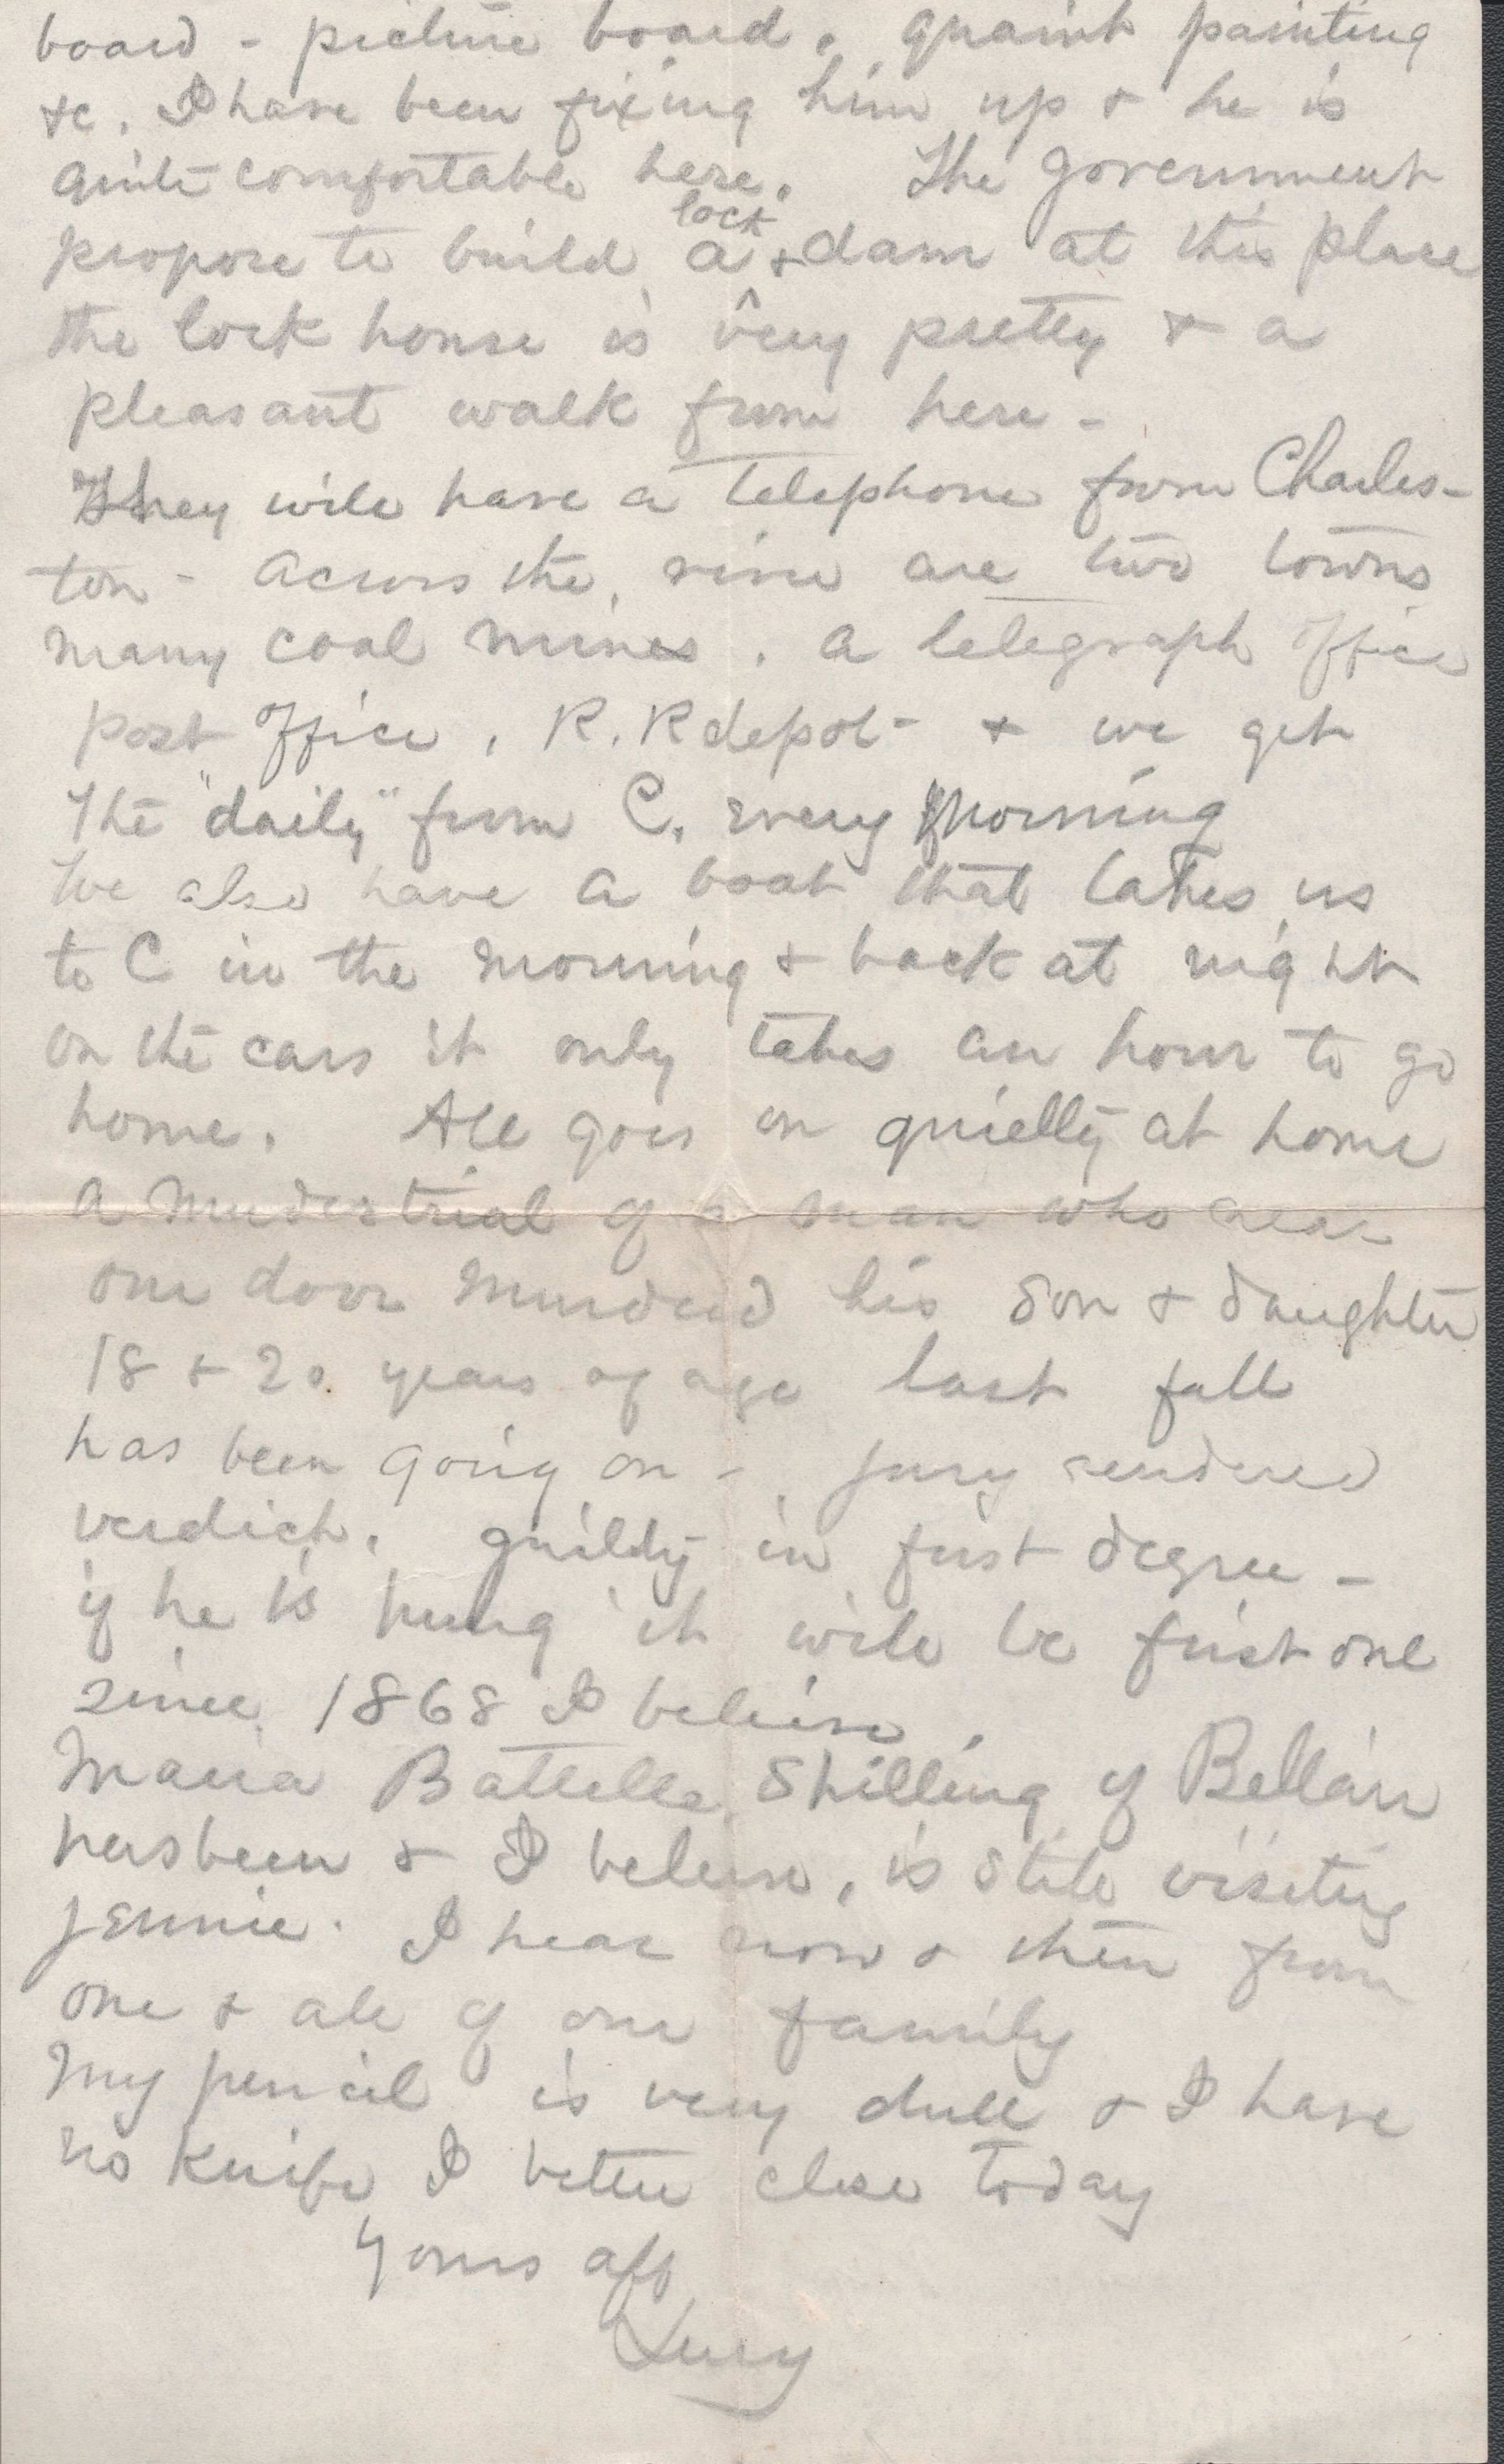 board - picture board. quaint painting
&c. I have been fixing him up & he is
quite comfortable here. The Government
propose to build a lock & dam at this place
the lock house is very pretty & a
pleasant walk from here -
They will have a telephone from Charles-
ton - across the river are two towns
many coal mines. a telegraph office
post office, R. R depot - & we get
The "daily" from C. every morning
We also have a boat that takes us
to C in the morning & back at night
on the cars it only takes an hour to go
home. All goes on quietly at home
a murder trial of a man who near
our door murdered his son & daughter
18 & 20 years of age last fall
has been going on - jury rendered
verdict. guildy in first degree -
if he is hung it will be first one
since 1868 I believe.
Maria Battelle Shilling of Bellair
has been & I believe, is still visiting
Jennie. I hear now & then from
one & all of our family
My pencil is very dull & I have
no knife I better close today
Yours aff
Lucy